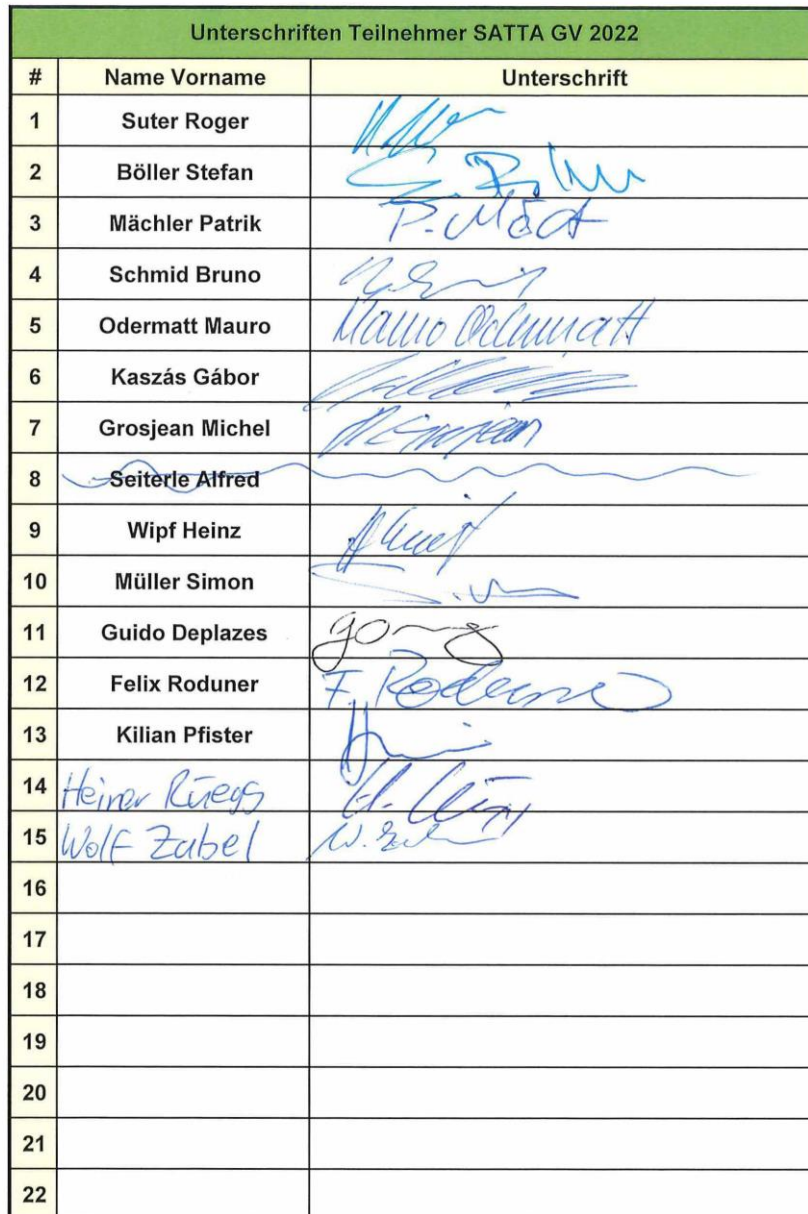 Unterschriften Teilnehmer SATTA GV 2022
# Name Vorname Unterschrift
1 Suter Roger
2 Böller Stefan
3 Mächler Patrik
4 Schmid Bruno
5 Odermatt Mauro Mauro Odermatt
6 Kaszás Gábor
7 Grosjean Michel
8 Seiterle Alfred
9 Wipf Heinz
10 Müller Simon
11 Guido Deplazes
12 Felix Roduner F. Roduner
13 Kilian Pfister
14 Heiner Rüegg
15 Wolf Zabel
16
17
18
19
20
21
22